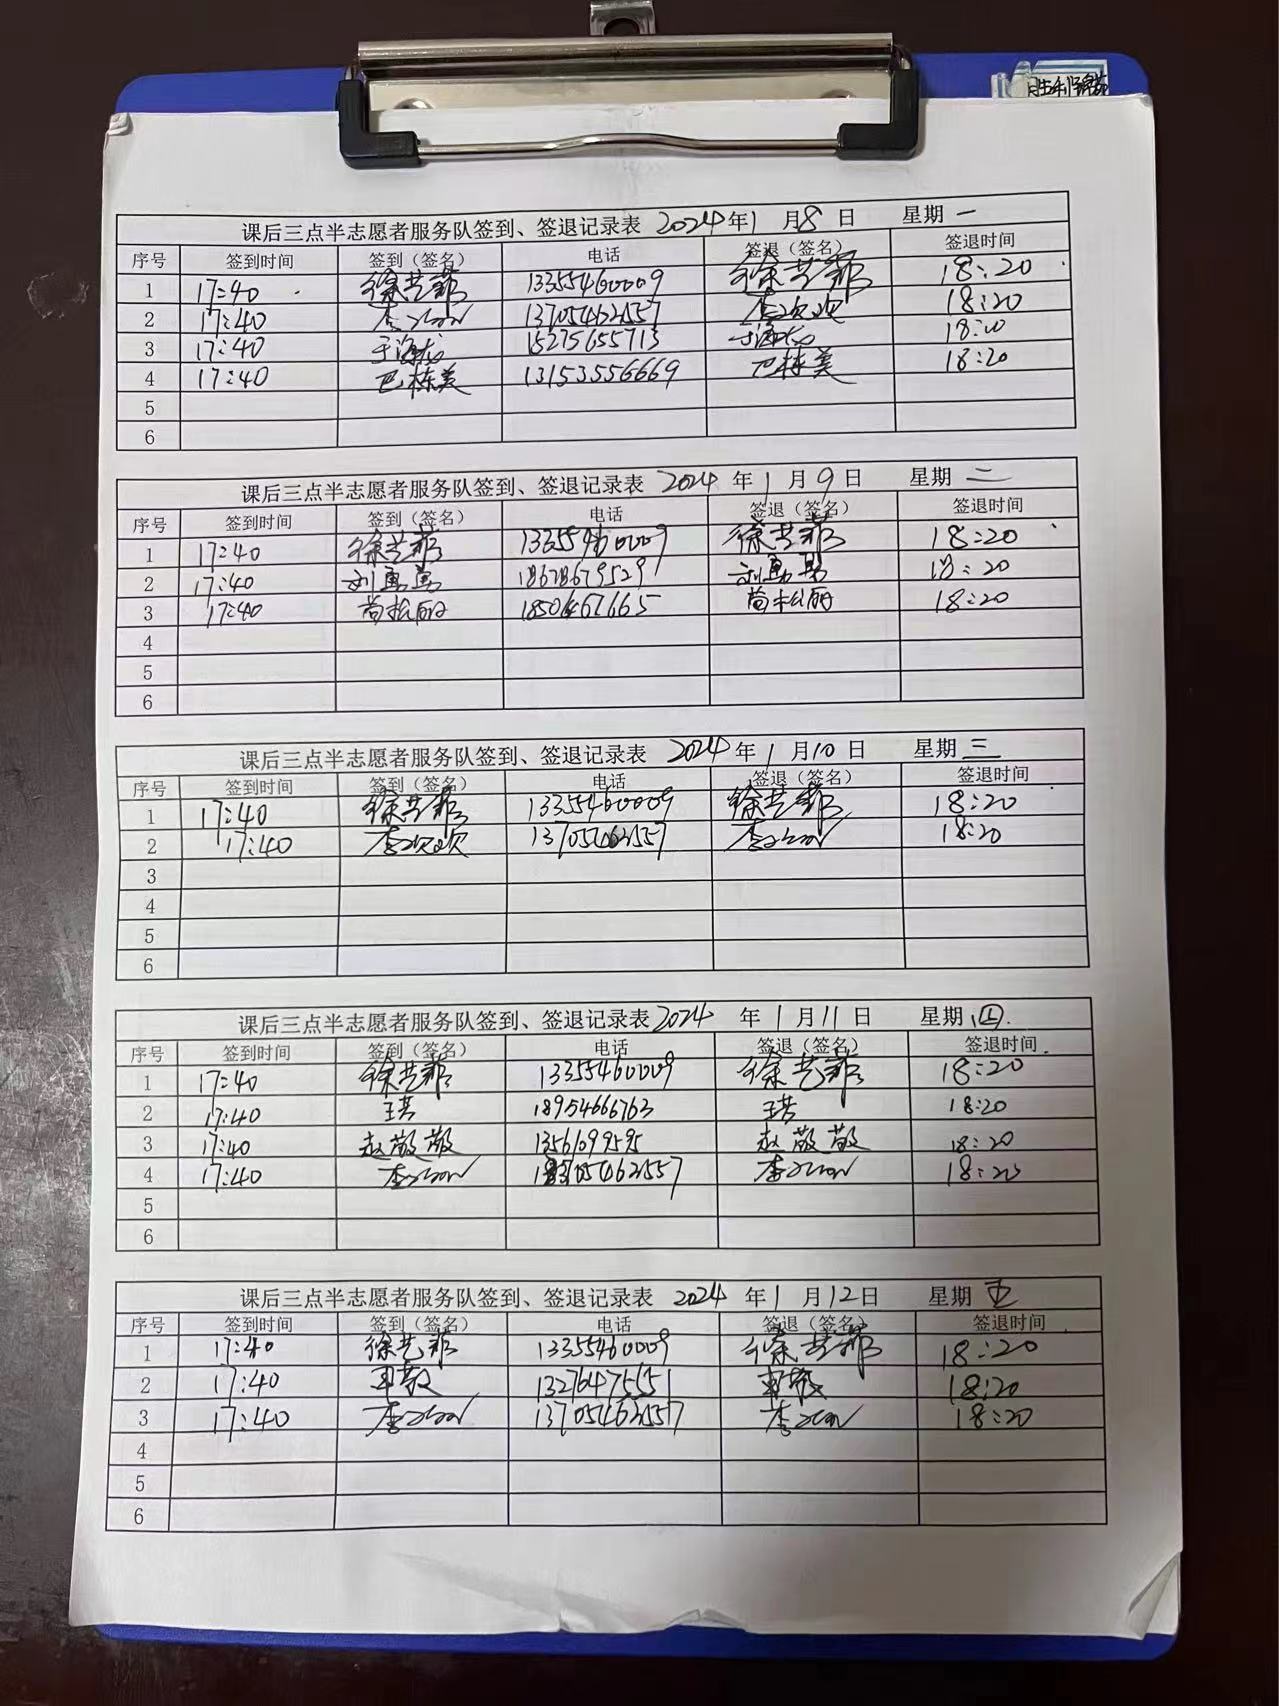 胜利锦苑
课后三点半志愿者服务队签到、签退记录表 2024年1月8日 星期一
序号 签到时间 签到（签名） 电话 签退（签名） 签退时间
1 17:40 徐艺菲 13355460009 徐艺菲 18:20
2 17:40 李 13705462557 李欢欢 18:20
3 17:40 于海龙 15275655713 于海龙 18:20
4 17:40 巴栋美 13153556669 巴栋美 18:20
5
6
课后三点半志愿者服务队签到、签退记录表 2024年1月9日 星期二
序号 签到时间 签到（签名） 电话 签退（签名） 签退时间
1 17:40 徐艺菲 13355460009 徐艺菲 18:20
2 17:40 刘勇勇 18678679529 刘勇勇 18:20
3 17:40 尚松丽 18:20
4
5
6
课后三点半志愿者服务队签到、签退记录表 2024年1月10日 星期三
序号 签到时间 签到（签名） 电话 签退（签名） 签退时间
1 17:40 徐艺菲 13355460009 徐艺菲 18:20
2 17:40 李欢欢 13705462557 李 18:20
3
4
5
6
课后三点半志愿者服务队签到、签退记录表 2024年1月11日 星期四
序号 签到时间 签到（签名） 电话 签退（签名） 签退时间
1 17:40 徐艺菲 13355460009 徐艺菲 18:20
2 17:40 18954666763 18:20
3 17:40 赵敬敬 13561099595 赵敬敬 18:20
4 17:40 李 13705462557 李 18:20
5
6
课后三点半志愿者服务队签到、签退记录表 2024年1月12日 星期五
序号 签到时间 签到（签名） 电话 签退（签名） 签退时间
1 17:40 徐艺菲 13355460009 徐艺菲 18:20
2 17:40 13276475551 18:20
3 17:40 李 13705462557 李 18:20
4
5
6